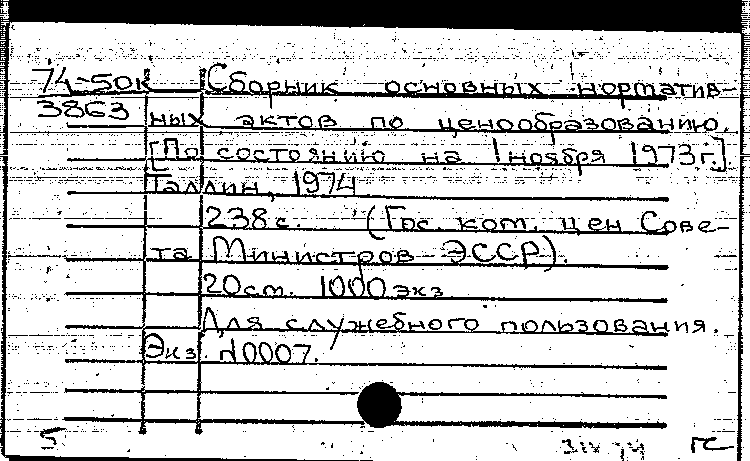 74-50к Сборник основных норматив-
3863 ных актов по ценообразованию.
[По состоянию на 1 ноября 1973г.]
Таллин, 1974
238с. (Гос. ком. цен Сове-
та Министров ЭССР).
20см. 1000 экз.
Для служебного пользования.
Экз. №0007.
5 3 IV 74 ГС